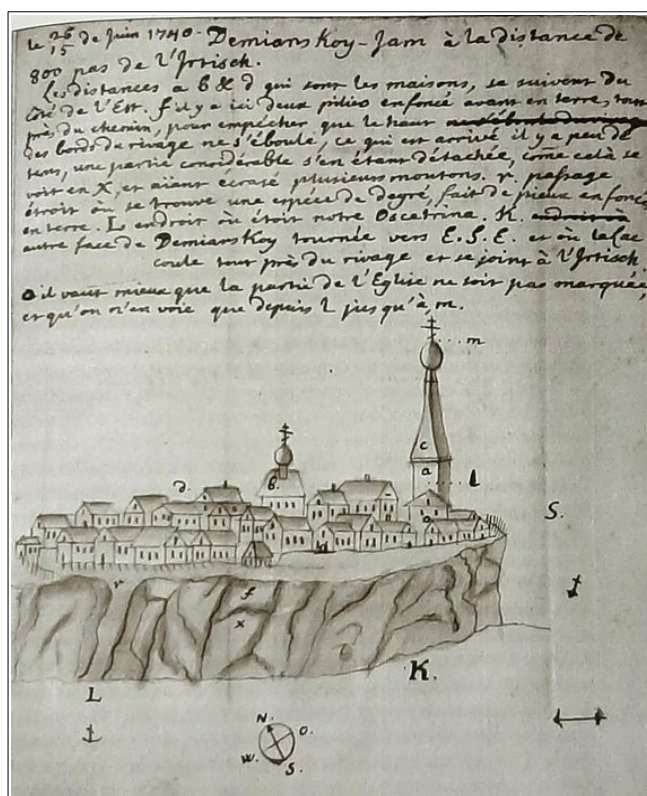 le 26/15 de Juin 1740. Demianskoy-Jam à la distance de
800 pas de l'Irtisch.
Les distances a b & d qui sont les maisons, se suivent du
côté de l'Est. f il y a ici deux pilies enfoncé avant en terre, tout
près du chemin, pour empécher que le haut
des bords du rivage ne s'éboule, ce qui est arrivé il y a peu de
tems, une partie considérable s'en étant détachée, come celà se
voit en X, et aïant écrasé plusieurs moutons. r. passage
étroit où se trouve une espéce de degré, fait de pieux enfoncé
en terre. L endroit où étoit notre Oscetrina. K. endroit où
autre face de Demianskoy tournée vers E.S.E. et où
coule tout près du rivage et se joint à l'Irtisch.
o il vaut mieux que la partie de l'Eglise ne soit pas marquée,
et qu'on n'en voie que depuis l jusqu'à, m.
m
c
a
l
d.
b.
o
S.
r
f
x
L
K.
N.
O.
W.
S.